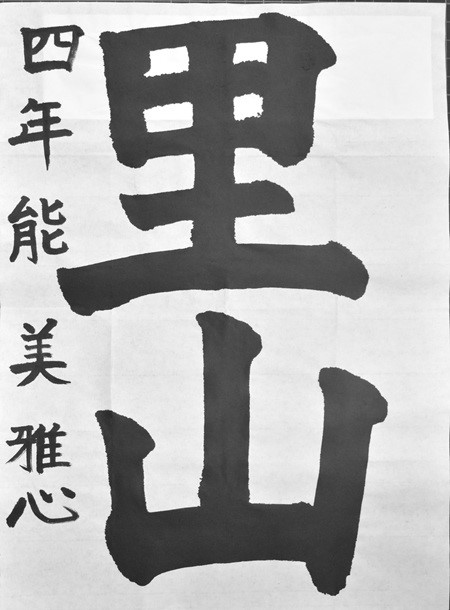 里山
四年 能 美 雅心